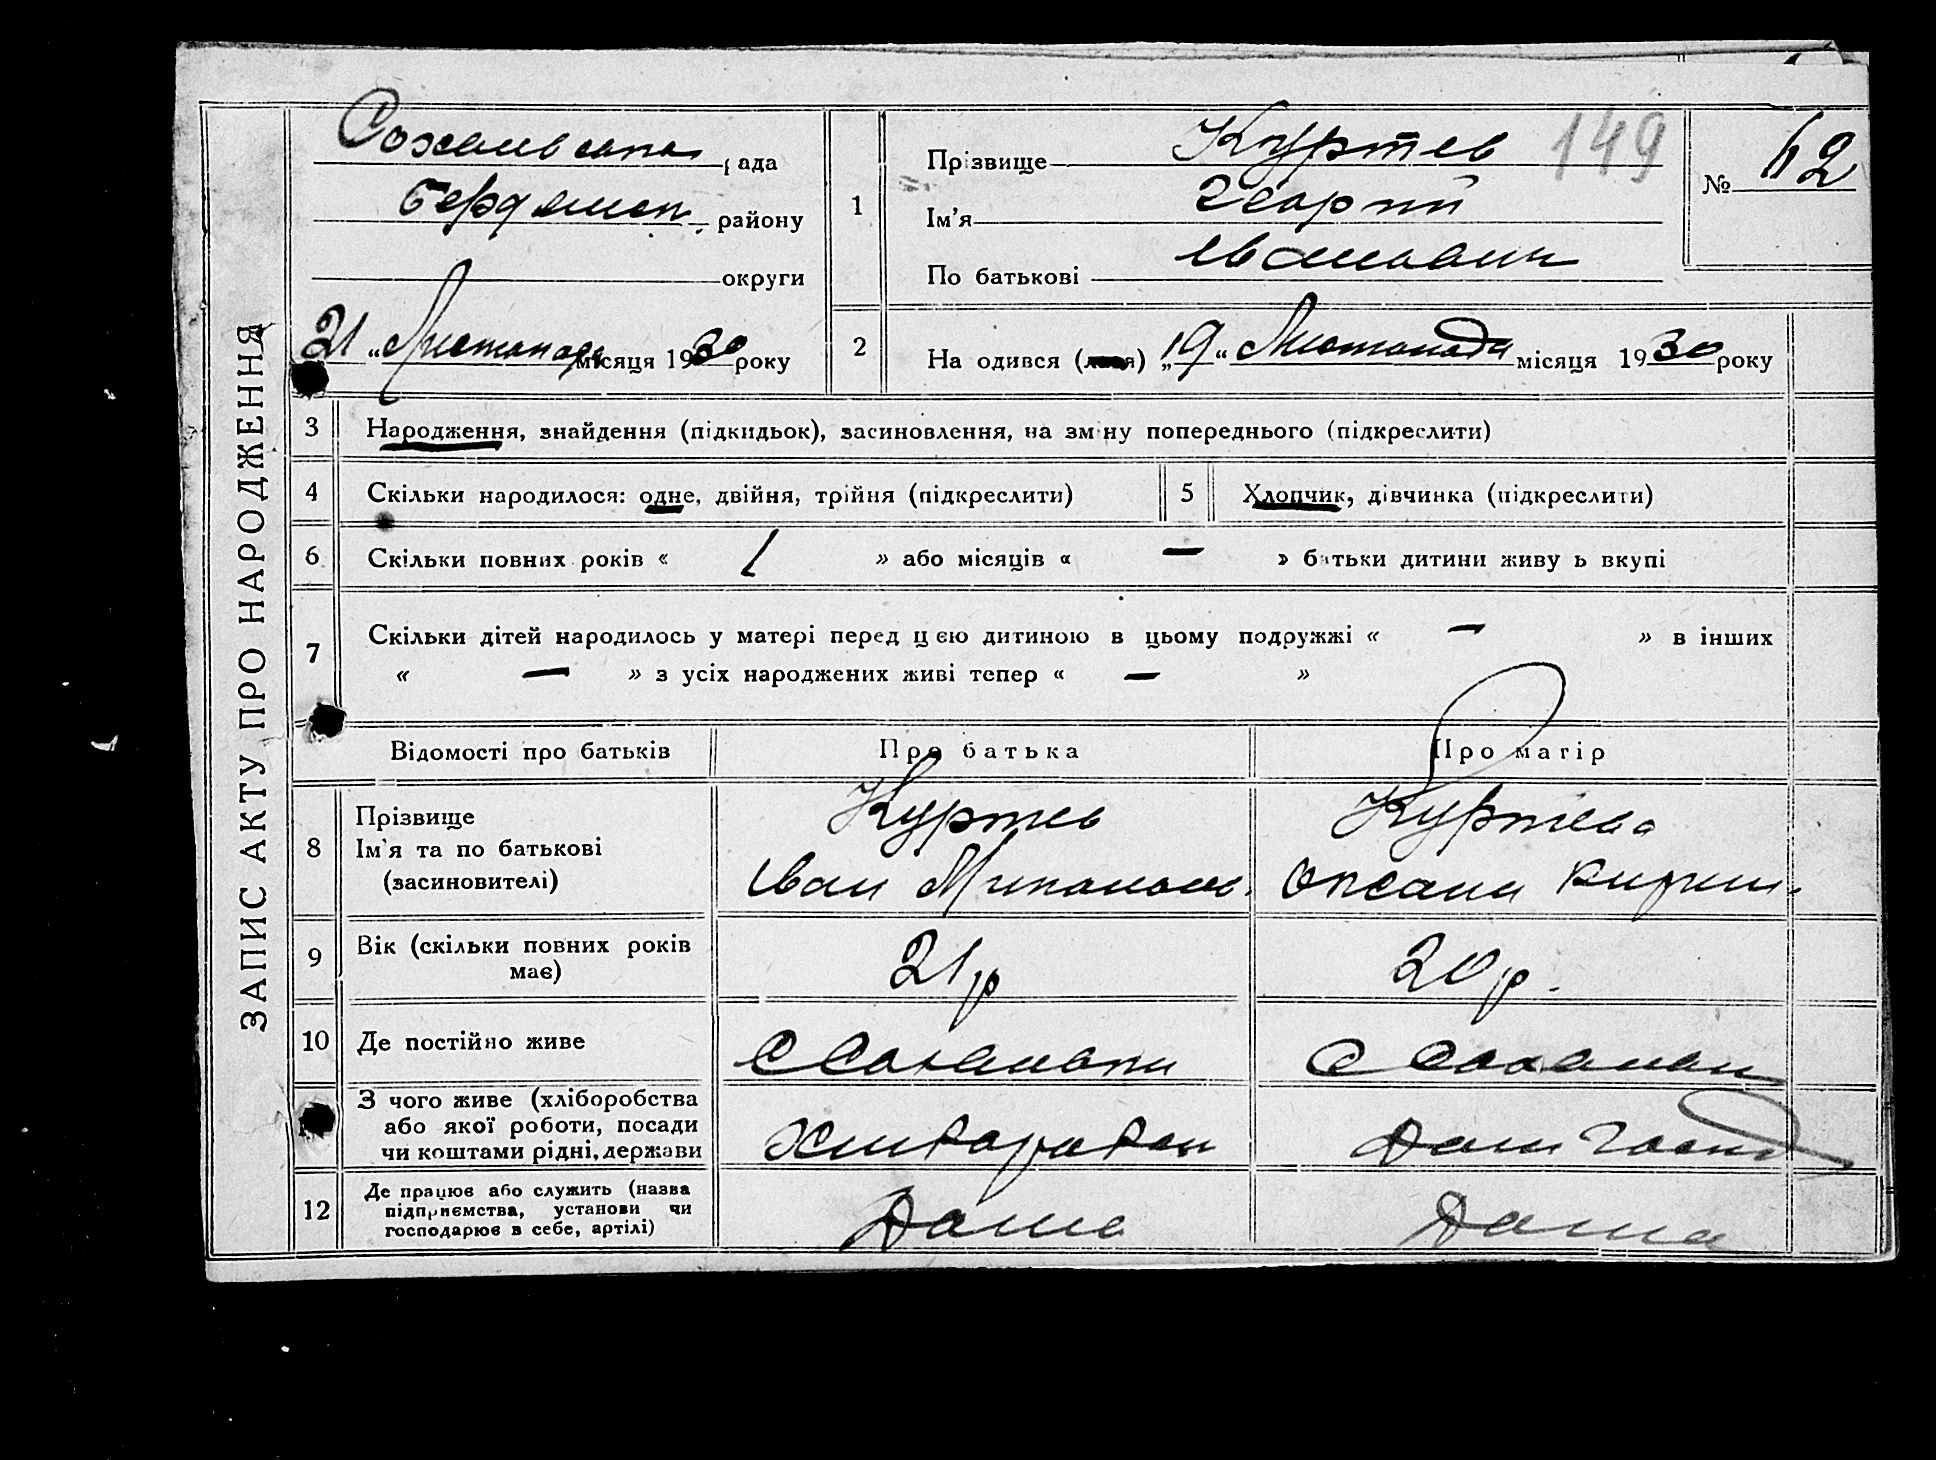 ЗАПИС АКТУ ПРО НАРОДЖЕННЯ
рада
району
округи
21 " Листопада місяця 1930 року
1
Прізвище Куртев 149
Ім'я Георгій
По батькові Іванович
№ 62
2
На одився „19" Листопада місяця 1930 року
3 Народження, знайдення (підкидьок), засиновлення, на зм ну попереднього (підкреслити)
4 Скільки народилося: одне, двійня, трійня (підкреслити) 5 Хлопчик, дівчинка (підкреслити)
6 Скільки повних років « 1 » або місяців « — » батьки дитини живу ь вкупі
7 Скільки дітей народилось у матері перед цією дитиною в цьому подружжі « — » в інших
« — » з усіх народжених живі тепер « — »
Відомості про батьків Про батька Про матір
8 Прізвище Куртев Куртева
Ім'я та по батькові
(засиновителі) Іван Оксана
9 Вік (скільки повних років 21 р 20 р.
має)
10 Де постійно живе с с
З чого живе (хліборобства
або якої роботи, посади Хлібороб Дом госп
чи коштами рідні, держави
12 Де працює або служить (назва
підприємства, установи чи Дома Дома
господарює в себе, артілі)